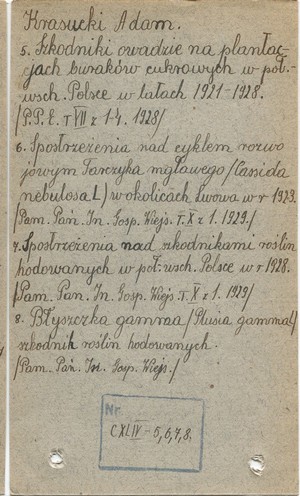 Krasucki Adam.
5. Szkodniki owadzie na plantac-
jach buraków cukrowych w poł.-
wsch. Polsce w latach 1921-1928.
/P.P.E. T VII z 1-4. 1928/
6. Spostrzeżenia nad cyklem rozwo
jowym Tarczyka mgławego /Casida
nebulosa L/ w okolicach Lwowa w r 1923.
/Pam. Pań. In. Gosp. Wiejs. T. X z 1. 1929./
7. Spostrzeżenia nad szkodnikami roślin
hodowanych w poł.-wsch. Polsce w r 1928.
/Pam. Pan. In. Gosp. Wiejs. T. X z 1. 1929/
8. Błyszczka gamma /Plusia gamma L/
szkodnik roślin hodowanych.
/Pam. Pań. In. Gosp. Wiejs./
Nr.
CXLIV - 5,6,7,8.